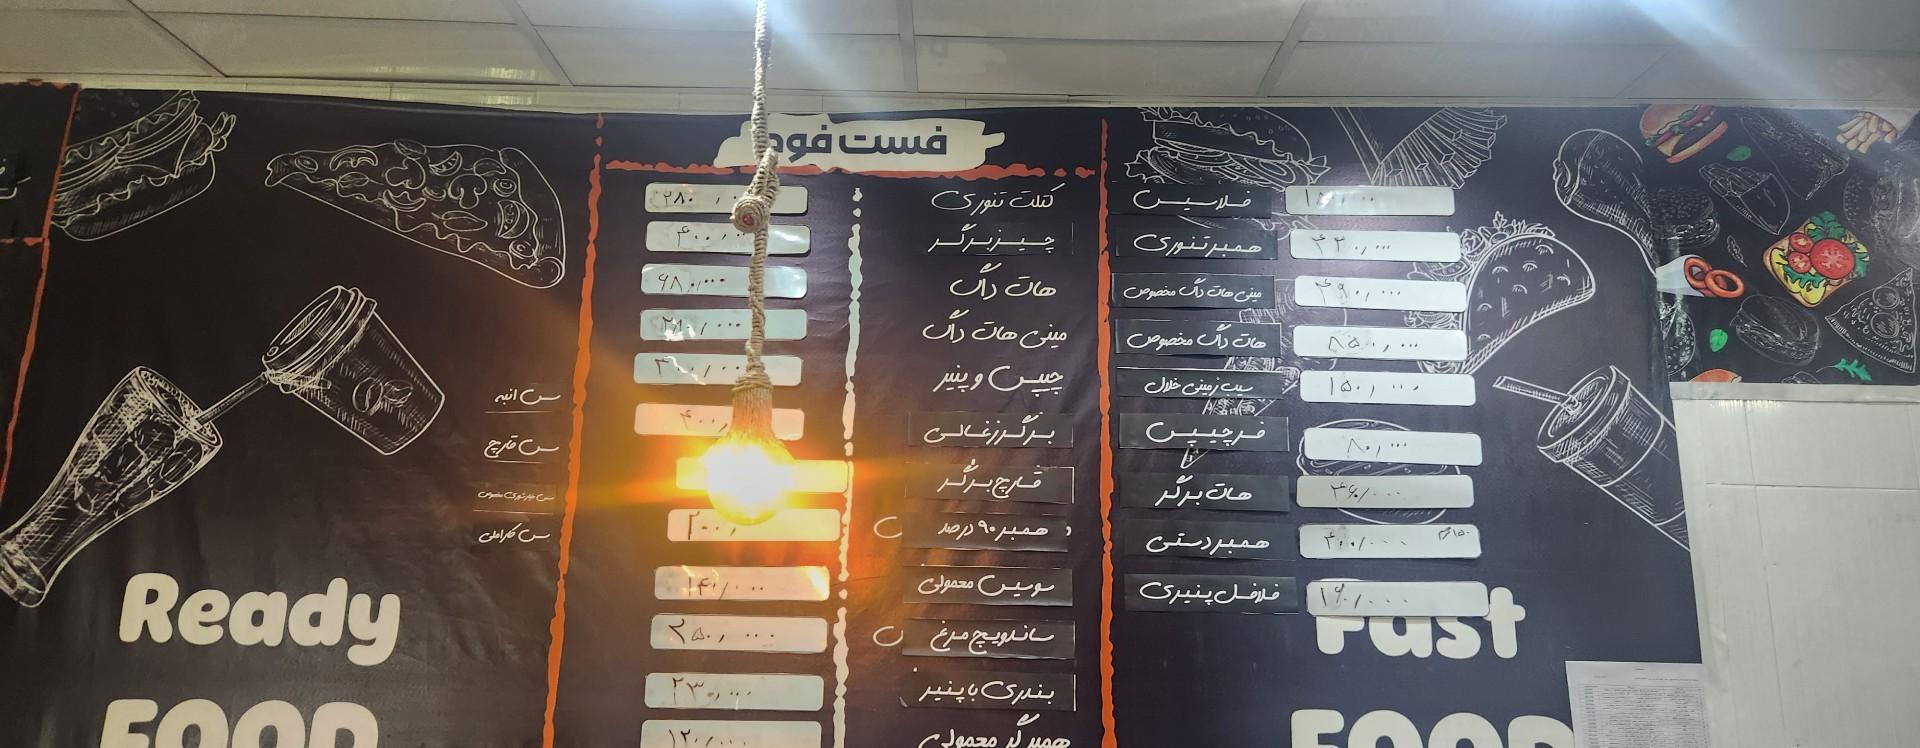 فست فود
کتلت تنوری ۲۸۰
چیزبرگر ۴۰۰,۰۰۰
هات داگ ۶۸۰,۰۰۰
مینی هات داگ
چیپس و پنیر
برگر زغالی ۴۰۰,
قارچ برگر
همبر ۹۰ درصد ۲۰۰,
سوسیس معمولی ۱۴۰/۰۰۰
ساندویچ مرغ ۲۵۰,۰۰۰
بندری با پنیر ۲۳۰,۰۰۰
همبرگر معمولی ۱۲۰/۰۰۰
فلاسیس
همبر تنوری
مینی هات داگ مخصوص ۴۹۰,۰۰۰
هات داگ مخصوص ۸۵۰,۰۰۰
سیب زمینی خلال ۱۵۰,۰۰۰
فرچیپس ۸۰,۰۰۰
هات برگر
همبر دستی
فلافل پنیری ۱۶۰/۰۰۰
سس انبه
سس قارچ
سس کاراملی
Ready
FOOD
Fast
FOOD